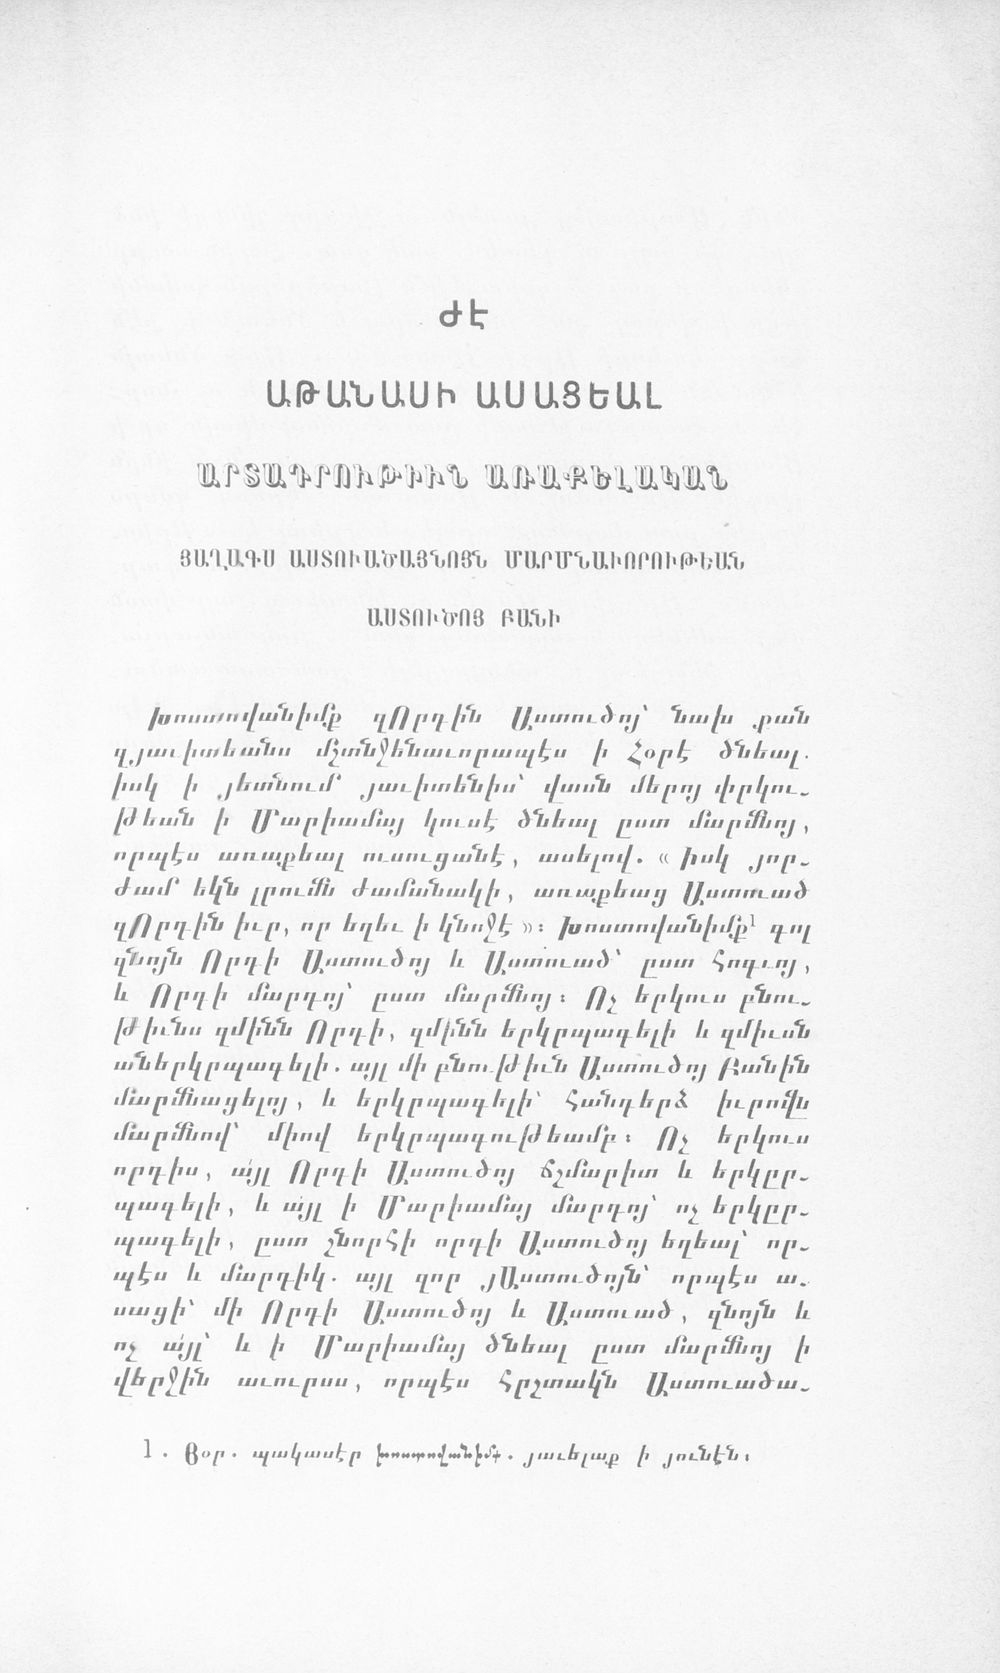 ԺԷ
ԱԹԱՆԱՍԻ ԱՍԱՑԵԱԼ
ԱՐՏԱԴՐՈՒԹԻՒՆ ԱՌԱՔԵԼԱԿԱՆ
ՅԱՂԱԳՍ ԱՍՏՈՒԱԾԱՅՆՈՅՆ ՄԱՐՄՆԱՒՈՐՈՒԹԵԱՆ
ԱՍՏՈՒԾՈՅ ԲԱՆԻ
Խոստովանիմք զՈրդին Աստուծոյ՝ նախ քան
զյաւիտեանս մշտնջենաւորապէս ի Հօրէ ծնեալ.
իսկ ի յետնում յաւիտենիս՝ վասն մերոյ փրկու-
թեան ի Մարիամայ կուսէ ծնեալ ըստ մարմնոյ,
որպէս առաքեալ ուսուցանէ, ասելով. « իսկ յոր-
ժամ եկն լրումն ժամանակի, առաքեաց Աստուած
զՈրդին իւր, որ եղեւ ի կնոջէ »։ Խոստովանիմք¹ գոլ
զնոյն Որդի Աստուծոյ և Աստուած՝ ըստ հոգւոյ,
և Որդի մարդոյ՝ ըստ մարմնոյ։ Ոչ երկուս բնու-
թիւնս զմինն Որդի, զմինն երկրպագելի և զմիւսն
աներկրպագելի. այլ մի բնութիւն Աստուծոյ Բանին
մարմնացելոյ, և երկրպագելի՝ հանդերձ իւրովն
մարմնով՝ միով երկրպագութեամբ։ Ոչ երկուս
որդիս, այլ Որդի Աստուծոյ ճշմարիտ և երկըր-
պագելի, և այլ ի Մարիամայ մարդոյ՝ ոչ երկըր-
պագելի, ըստ շնորհի որդի Աստուծոյ եղեալ՝ որ-
պէս և մարդիկ. այլ զոր յԱստուծոյն՝ որպէս ա-
սացի՝ մի Որդի Աստուծոյ և Աստուած, զնոյն և
ոչ այլ՝ և ի Մարիամայ ծնեալ ըստ մարմնոյ ի
վերջին աւուրսս, որպէս հրշտակն Աստուածա-
1. Յօր. պակասէր խոստովանիմք. յաւելաք ի յունէն։